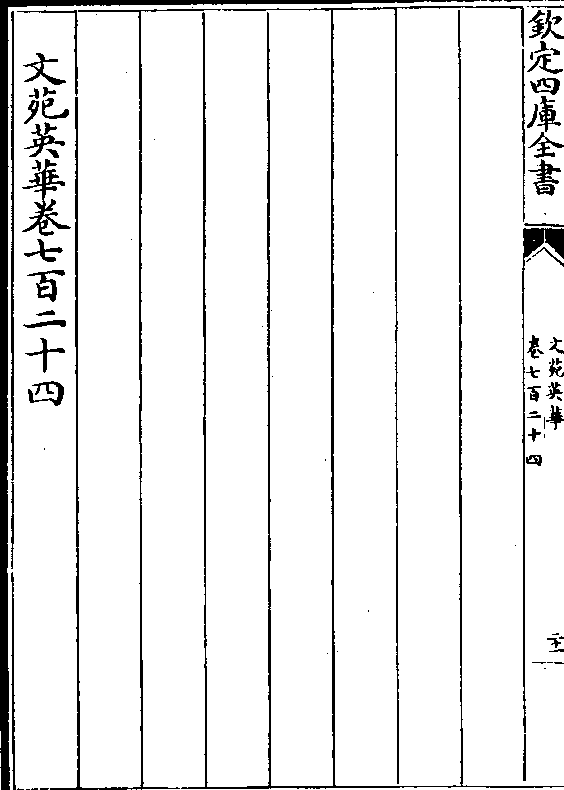 欽定四庫全書
文苑英華
卷七百二十四
二十二
文苑英華卷七百二十四